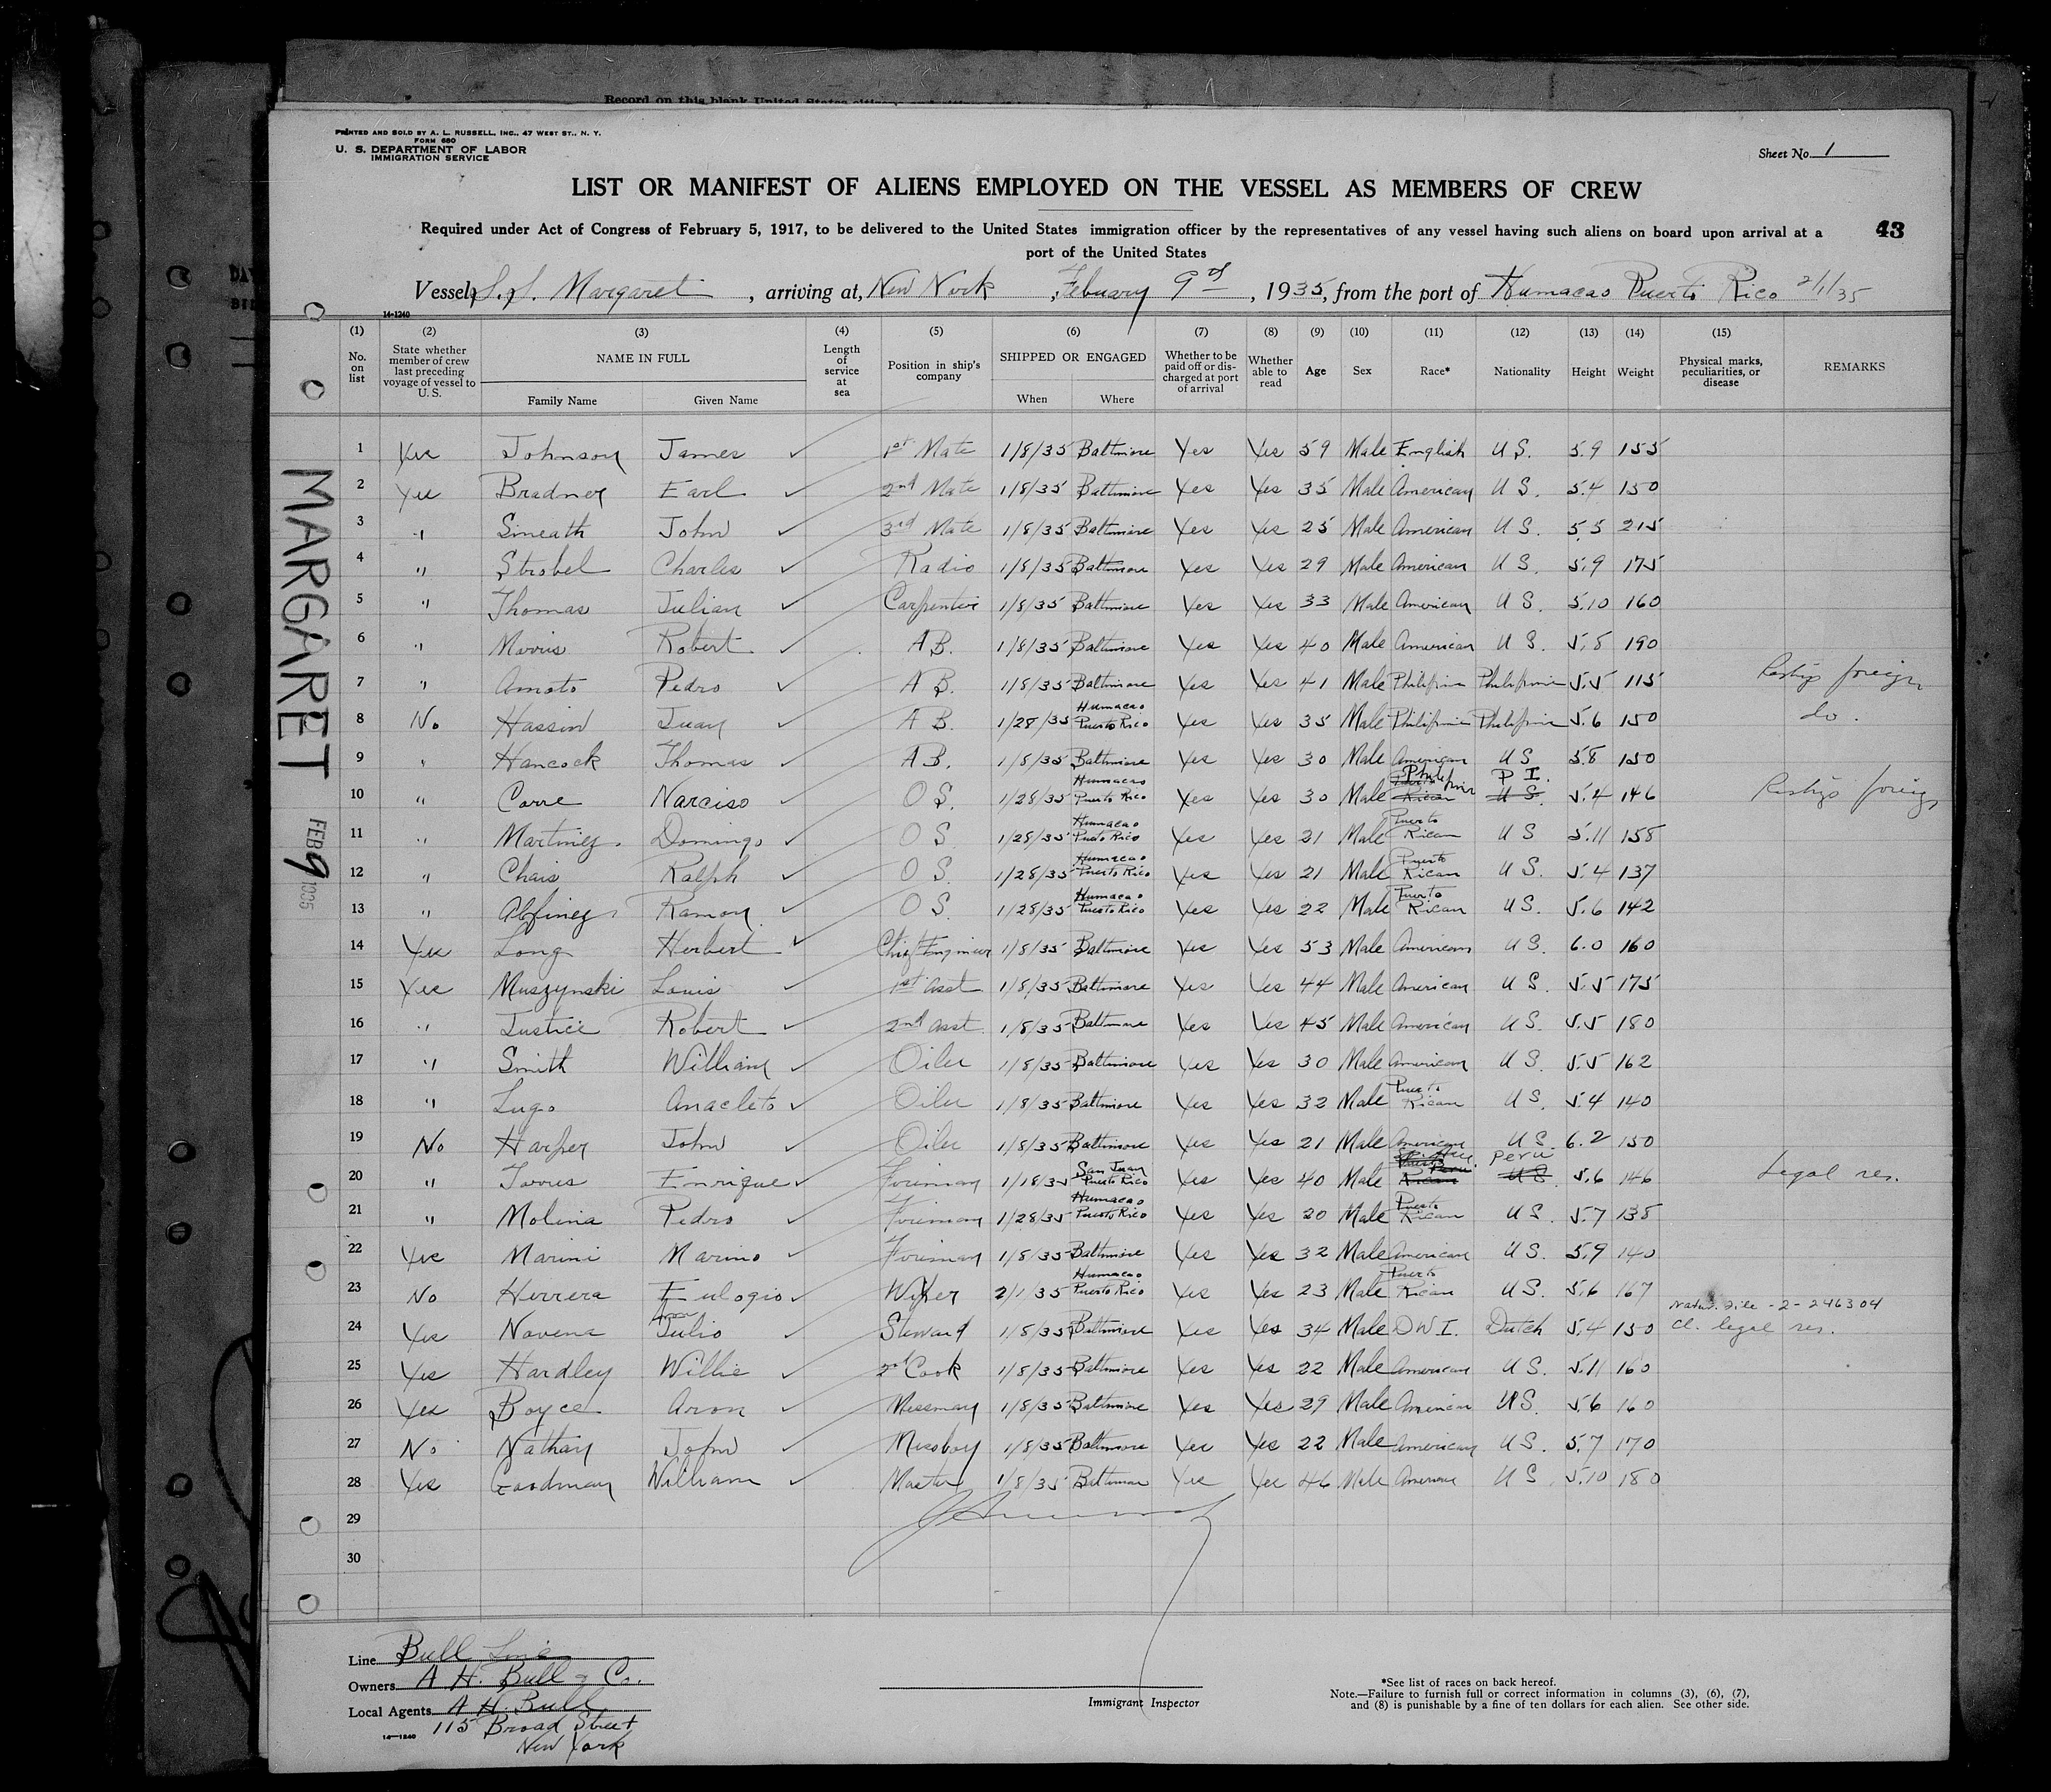 Record on this blank United States
PRINTED AND SOLD BY A. L. RUSSELL, INC., 47 WEST ST., N. Y.
FORM 680
U. S. DEPARTMENT OF LABOR
IMMIGRATION SERVICE
Sheet No. 1
LIST OR MANIFEST OF ALIENS EMPLOYED ON THE VESSEL AS MEMBERS OF CREW
Required under Act of Congress of February 5, 1917, to be delivered to the United States immigration officer by the representatives of any vessel having such aliens on board upon arrival at a
port of the United States
43
Vessel S.S. Margaret, arriving at, New York, Febuary 9th, 1935, from the port of Humacao Puerto Rico 2/1/35
14-1240
(1) (2) (3) (4) (5) (6) (7) (8) (9) (10) (11) (12) (13) (14) (15)
No. on list State whether member of crew last preceding voyage of vessel to U. S. NAME IN FULL Family Name Given Name Length of service at sea Position in ship's company SHIPPED OR ENGAGED When Where Whether to be paid off or discharged at port of arrival Whether able to read Age Sex Race* Nationality Height Weight Physical marks, peculiarities, or disease REMARKS
1 Yes Johnson James 1st Mate 1/8/35 Baltimore Yes Yes 59 Male English U S. 5.9 155
2 Yes Bradner Earl 2nd Mate 1/8/35 Baltimore Yes Yes 35 Male American U S. 5.4 150
3 " Smeath John 3rd Mate 1/8/35 Baltimore Yes Yes 25 Male American U S. 5.5 215
4 " Strobel Charles Radio 1/8/35 Baltimore Yes Yes 29 Male American U S. 5.9 175
5 " Thomas Julian Carpenter 1/8/35 Baltimore Yes Yes 33 Male American U S. 5.10 160
6 " Morris Robert A B. 1/8/35 Baltimore Yes Yes 40 Male American U S. 5.8 190
7 " Amato Pedro A B. 1/8/35 Baltimore Yes Yes 41 Male Philipine Philipine 5.5 115 foreign
8 No Hassin Juan A B. 1/28/35 Humacao Puerto Rico Yes Yes 35 Male Philipine Philipine 5.6 150 do.
9 " Hancock Thomas A B. 1/8/35 Baltimore Yes Yes 30 Male American U S 5.8 150
10 " Carre Narciso O S. 1/28/35 Humacao Puerto Rico Yes Yes 30 Male Puerto Rican Philipine P I. U S. 5.4 146 foreign
11 " Martinez Domingo O S 1/28/35 Humacao Puerto Rico Yes Yes 21 Male Puerto Rican U S 5.11 158
12 " Chais Ralph O S. 1/28/35 Humacao Puerto Rico Yes Yes 21 Male Puerto Rican U S. 5.4 137
13 " Ramon O S. 1/28/35 Humacao Puerto Rico Yes Yes 22 Male Puerto Rican U S. 5.6 142
14 Yes Long Herbert Chief Engineer 1/8/35 Baltimore Yes Yes 53 Male American U S. 6.0 160
15 Yes Muszynski Louis 1st Asst 1/8/35 Baltimore Yes Yes 44 Male American U S. 5.5 175
16 " Justice Robert 2nd Asst. 1/8/35 Baltimore Yes Yes 45 Male American U S. 5.5 180
17 " Smith William Oiler 1/8/35 Baltimore Yes Yes 30 Male American U S. 5.5 162
18 " Lugo Anacleto Oiler 1/8/35 Baltimore Yes Yes 32 Male Puerto Rican U S. 5.4 140
19 No Harper John Oiler 1/8/35 Baltimore Yes Yes 21 Male American U S. 6.2 150
20 " Torres Enrique Fireman 1/18/35 San Juan Puerto Rico Yes Yes 40 Male Puerto Rican Peru Peru U S. 5.6 146 Legal res.
21 " Molina Pedro Fireman 1/28/35 Humacao Puerto Rico Yes Yes 20 Male Puerto Rican U S. 5.7 138
22 Yes Marini Marino Fireman 1/8/35 Baltimore Yes Yes 32 Male American U S. 5.9 140
23 No Herrera Eulogio Wiper 2/1/35 Humacao Puerto Rico Yes Yes 23 Male Puerto Rican U S. 5.6 167
24 Yes Navena Julio Steward 1/8/35 Baltimore Yes Yes 34 Male D W I. Dutch 5.4 150 Natur. file -2-246304 Cl. legal res.
25 Yes Hardley Willie 2nd Cook 1/8/35 Baltimore Yes Yes 22 Male American U S. 5.11 160
26 Yes Boyce Aron Messman 1/8/35 Baltimore Yes Yes 29 Male American U S. 5.6 160
27 No Nathan John Messboy 1/8/35 Baltimore Yes Yes 22 Male American U S. 5.7 170
28 Yes Goodman William Master 1/8/35 Baltimore Yes Yes 46 Male American U S 5.10 180
29
30
MARGARET FEB 9 1935
Line Bull Line
Owners A H. Bull & Co.
Local Agents A H. Bull
115 Broad Street
New York
14-1240
Immigrant Inspector
*See list of races on back hereof.
Note.—Failure to furnish full or correct information in columns (3), (6), (7),
and (8) is punishable by a fine of ten dollars for each alien. See other side.